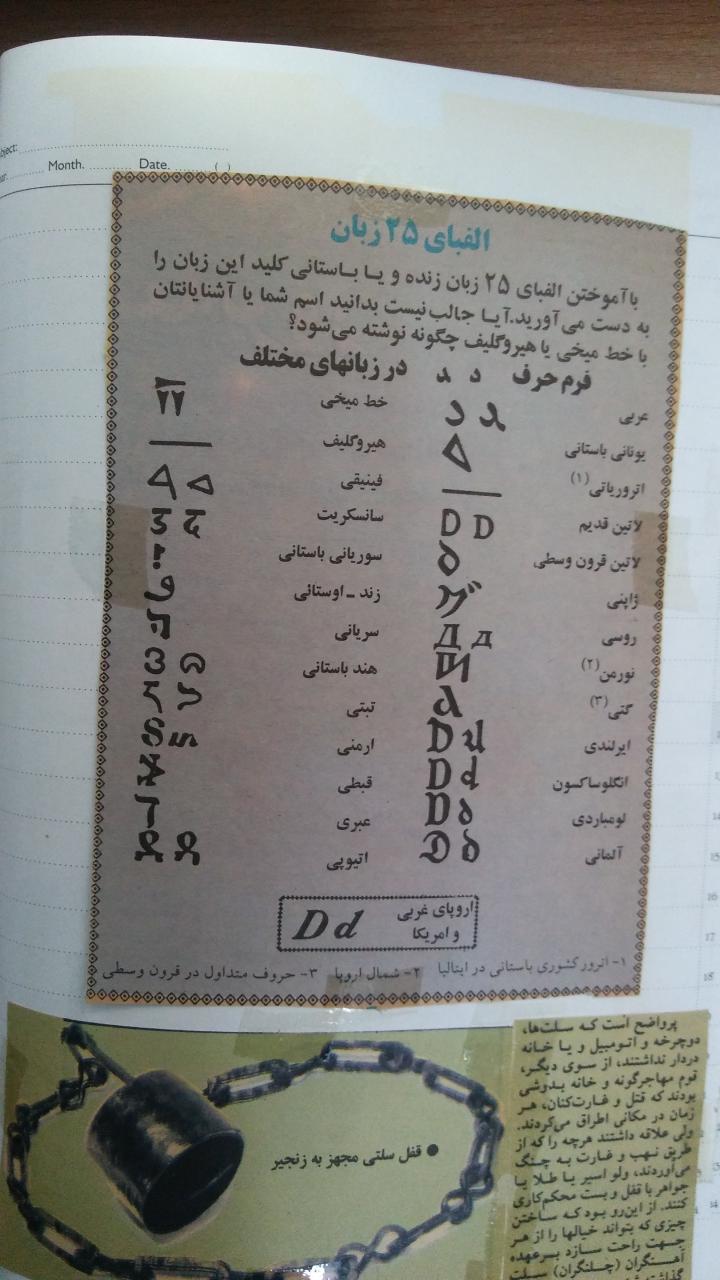 Month. ........... Date. ........ ( )
الفبای ۲۵ زبان
با آموختن الفبای ۲۵ زبان زنده و یا باستانی کلید این زبان را
به دست می آورید. آیا جالب نیست بدانید اسم شما یا آشنایانتان
با خط میخی یا هیروگلیف چگونه نوشته می شود؟
فرم حرف د د در زبانهای مختلف
عربی
یونانی باستانی
اتروریاتی (۱)
لاتین قدیم D D
لاتین قرون وسطی
ژاپنی
روسی Д д
نورمن (۲)
گتی (۳)
ایرلندی
انگلوساکسون
لومباردی
آلمانی
خط میخی
هیروگلیف
فینیقی
سانسکریت
سوریانی باستانی
زند ـ اوستائی
سریانی
هند باستانی
تبتی
ارمنی
قبطی
عبری
اتیوپی
اروپای غربی
و امریکا
D d
۱- اترور کشوری باستانی در ایتالیا ۲- شمال اروپا ۳- حروف متداول در قرون وسطی
● قفل سلتی مجهز به زنجیر
پرواضح است که سلت‌ها،
دوچرخه و اتومبیل و یا خانه
دردار نداشتند، از سوی دیگر،
قوم مهاجرگونه و خانه بدوشی
بودند که قتل و غارت‌کنان، هر
زمان در مکانی اطراق می‌کردند.
ولی علاقه داشتند هرچه را که از
طریق نهب و غارت به چنگ
می‌آوردند، ولو اسیر یا طلا یا
جواهر با قفل و بست محکم‌کاری
کنند. از این‌رو بود که ساختن
چیزی که بتواند خیالها را از هر
جهت راحت سازد بر عهده
آهنگران (چلنگران) سلت